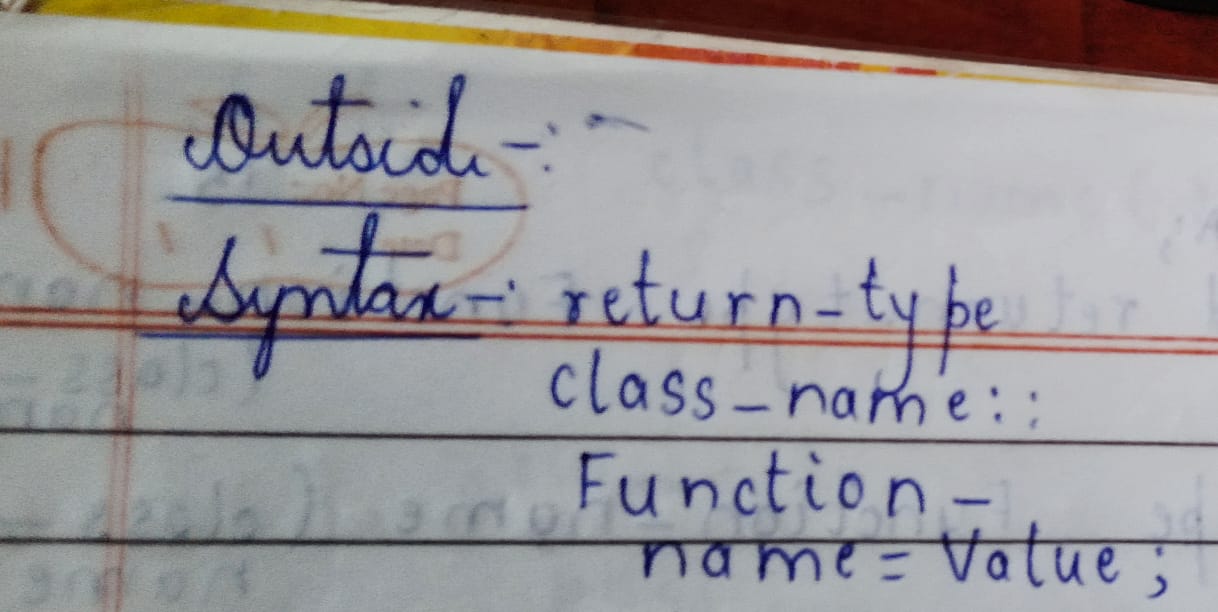 Outside -:-
Syntax -: return-type
class-name::
Function-
name = Value;